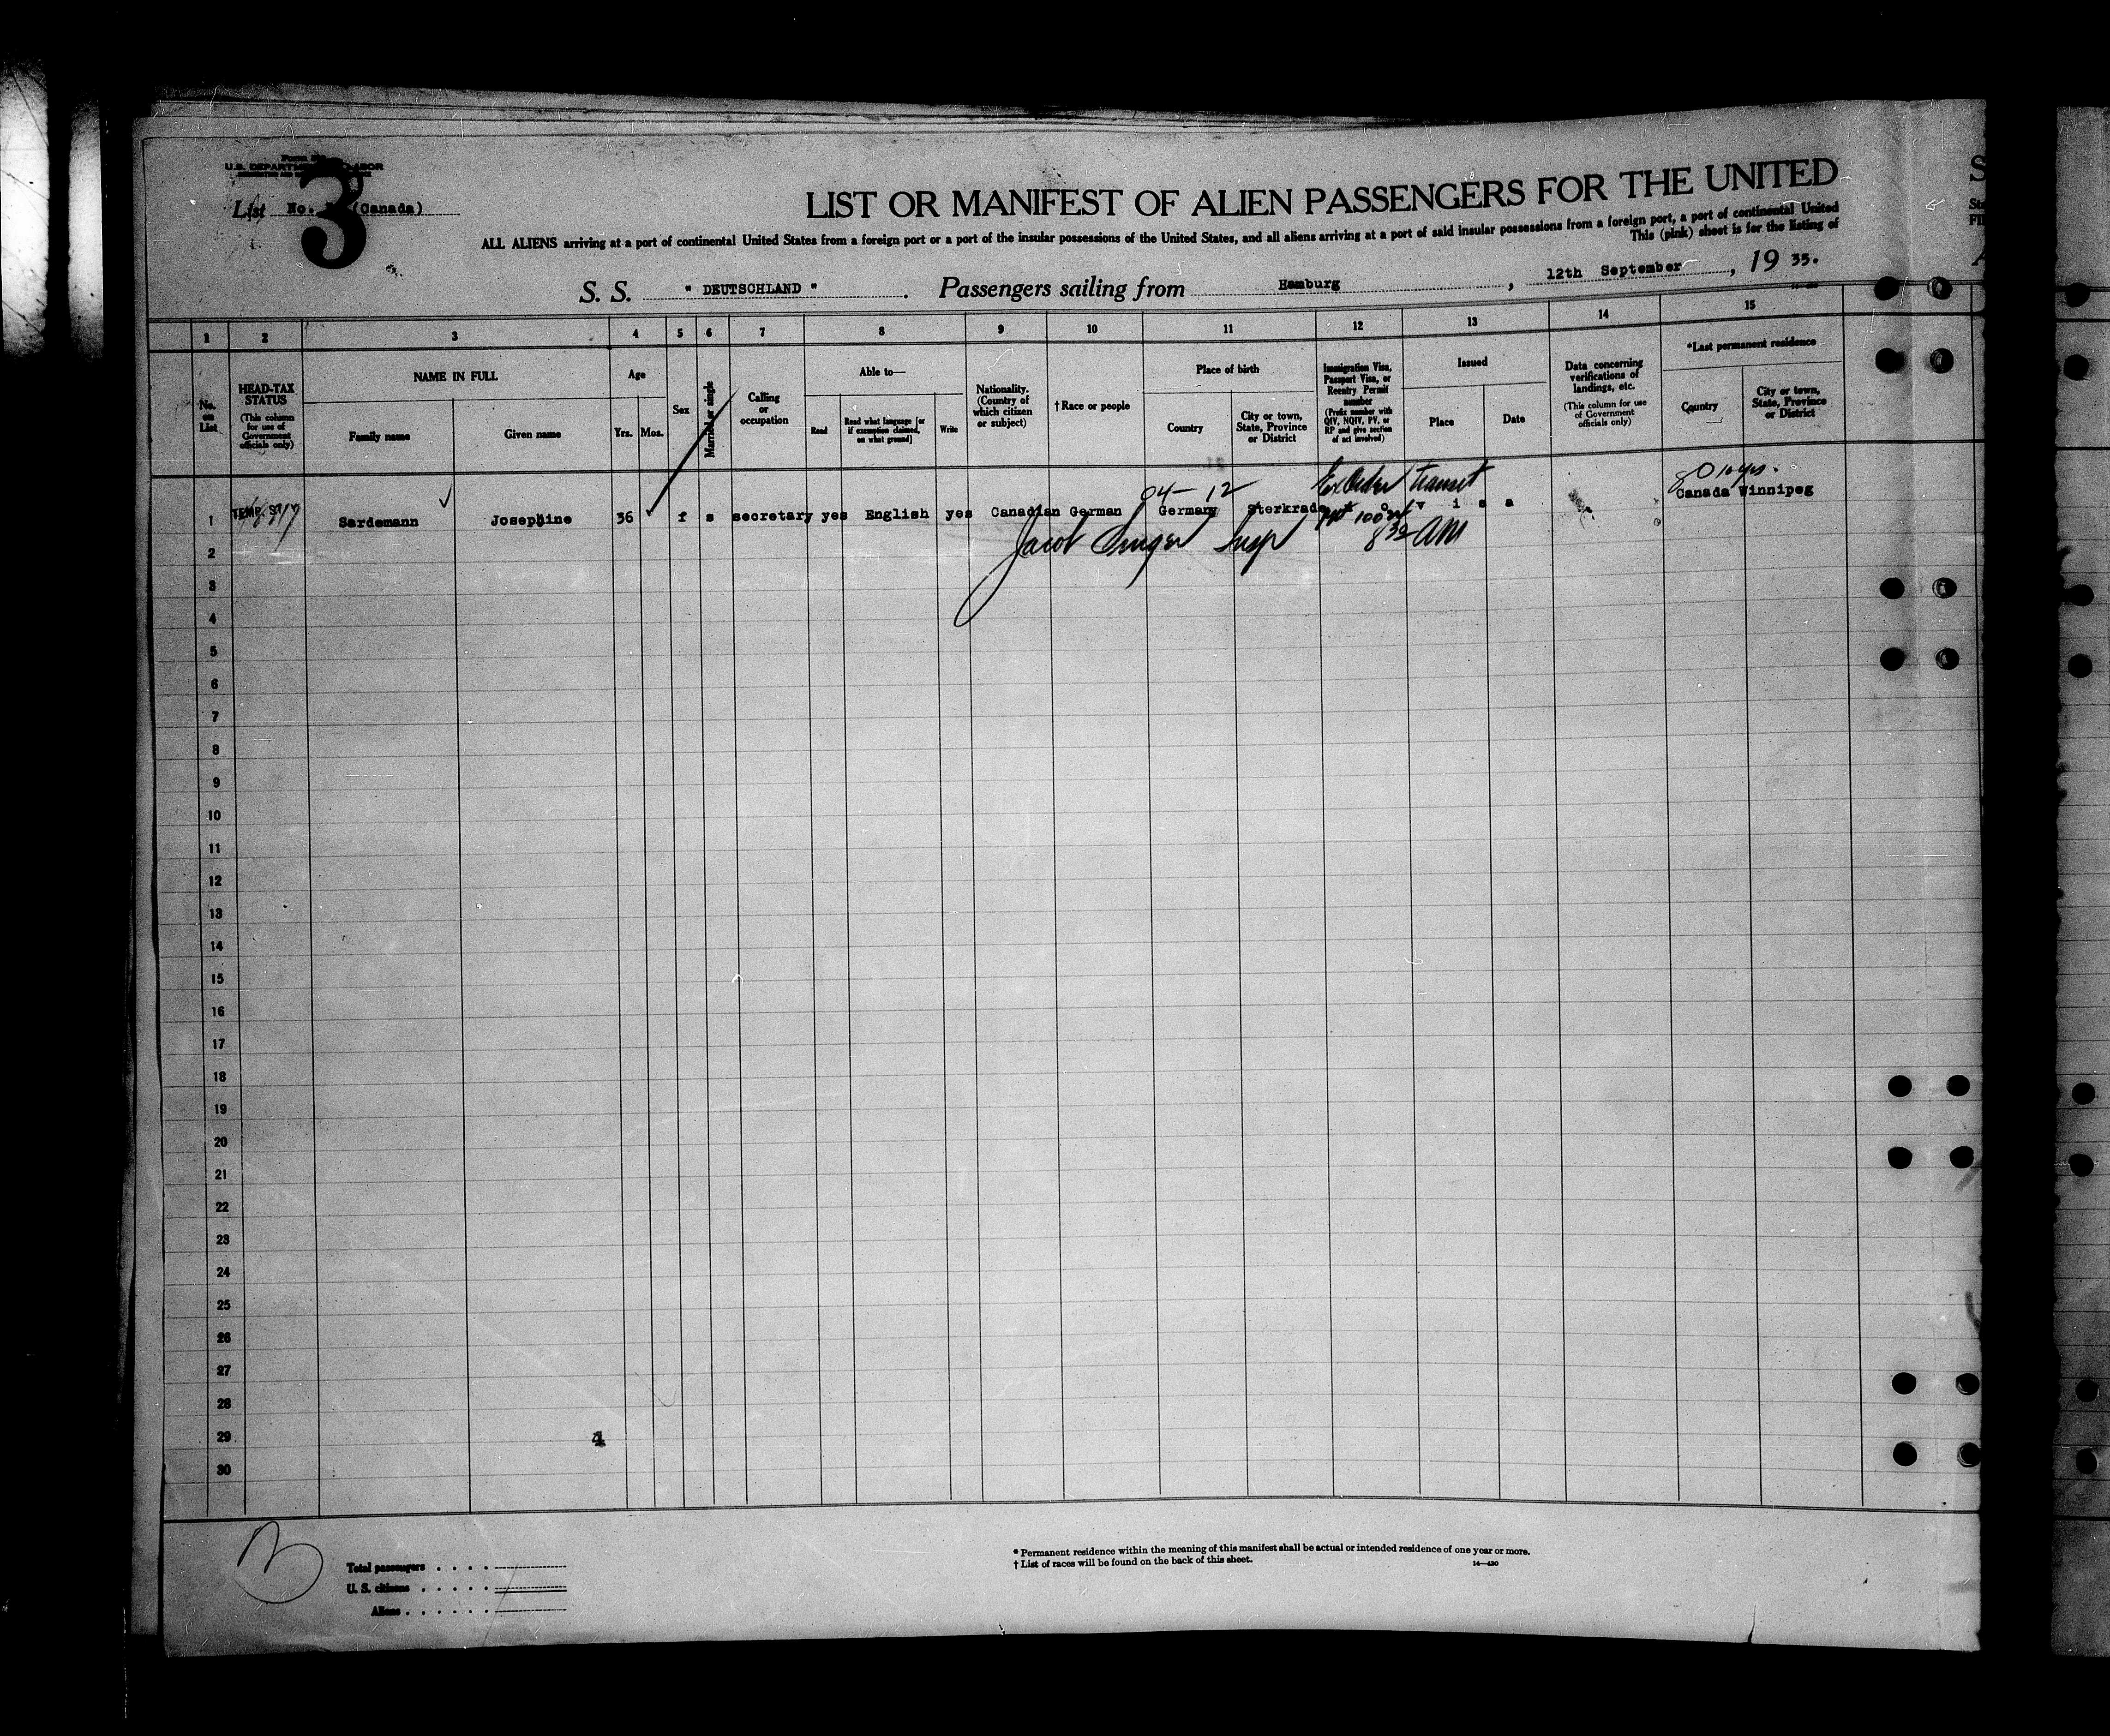 U.S. DEPARTMENT OF LABOR
3
List No. (Canada)
LIST OR MANIFEST OF ALIEN PASSENGERS FOR THE UNITED
ALL ALIENS arriving at a port of continental United States from a foreign port or a port of the insular possessions of the United States, and all aliens arriving at a port of said insular possessions from a foreign port, a port of continental United
This (pink) sheet is for the listing of
S. S. " DEUTSCHLAND " . Passengers sailing from Hamburg , 12th September , 19 35.
1 2 3 4 5 6 7 8 9 10 11 12 13 14 15
No. on List
HEAD-TAX STATUS
(This column for use of Government officials only)
NAME IN FULL
Family name
Given name
Age
Yrs.
Mos.
Sex
Married or single
Calling or occupation
Able to—
Read
Read what language [or if exemption claimed, on what ground]
Write
Nationality. (Country of which citizen or subject)
†Race or people
Place of birth
Country
City or town, State, Province or District
Immigration Visa, Passport Visa, or Reentry Permit number
(Prefix number with QIV, NQIV, PV, or RP and give section of act involved)
Issued
Place
Date
Data concerning verifications of landings, etc.
(This column for use of Government officials only)
*Last permanent residence
Country
City or town, State, Province or District
04-12 transit 10 yrs.
1 Sardemann Josephine 36 f s secretary yes English yes Canadian German Germany Sterkrade v i s a Canada Winnipeg
2 Jacob Singer Insp 8 30 AM
3
4
5
6
7
8
9
10
11
12
13
14
15
16
17
18
19
20
21
22
23
24
25
26
27
28
29
4
30
Total passengers
U. S. citizens
Aliens
* Permanent residence within the meaning of this manifest shall be actual or intended residence of one year or more.
† List of races will be found on the back of this sheet.
14—430